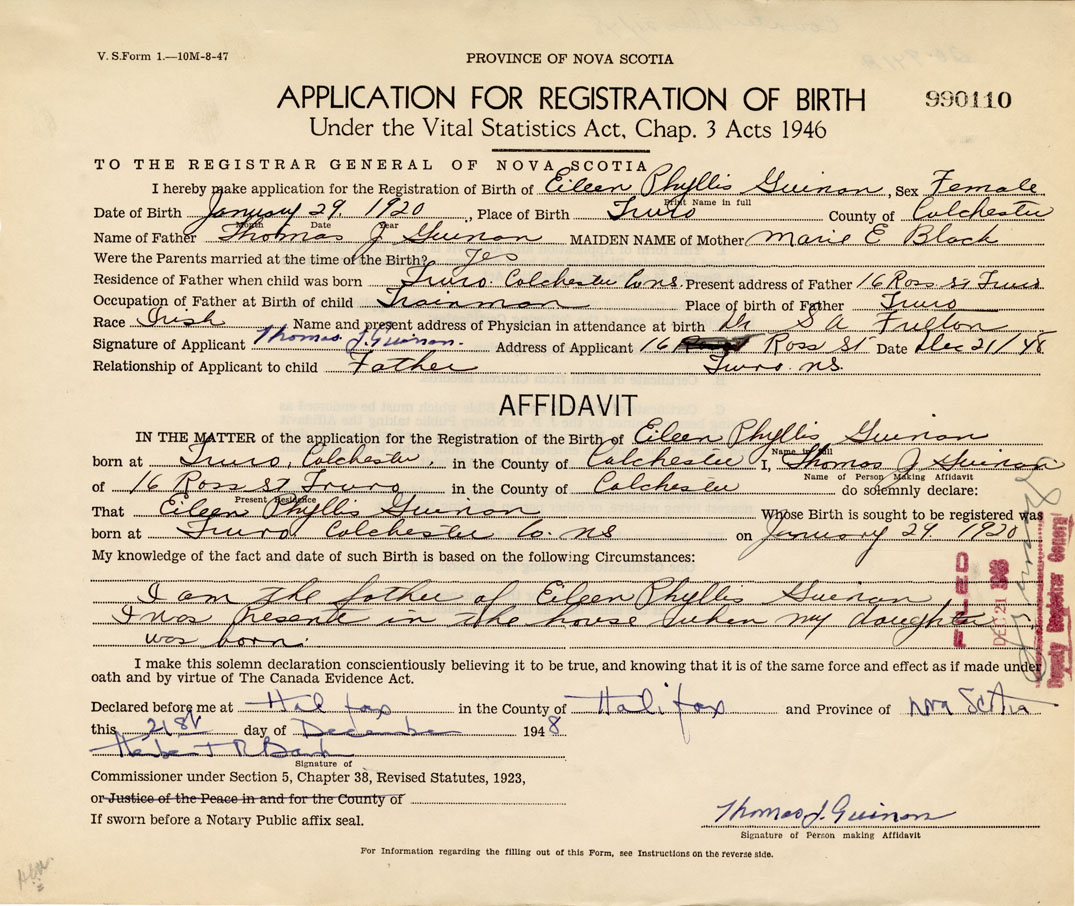 V. S. Form 1.—10M-8-47
PROVINCE OF NOVA SCOTIA
APPLICATION FOR REGISTRATION OF BIRTH
990110
Under the Vital Statistics Act, Chap. 3 Acts 1946
TO THE REGISTRAR GENERAL OF NOVA SCOTIA
I hereby make application for the Registration of Birth of Eileen Phyllis Guinan, Sex Female
Print Name in full
Date of Birth January 29. 1920, Place of Birth Truro County of Colchester
Month Date Year
Name of Father Thomas J Guinan MAIDEN NAME of Mother Marie E Black
Were the Parents married at the time of the Birth? Yes
Residence of Father when child was born Truro. Colchester Co. N.S. Present address of Father 16 Ross St Truro
Occupation of Father at Birth of child Trainman Place of birth of Father Truro
Race Irish Name and present address of Physician in attendance at birth Dr S A Fulton
Signature of Applicant Thomas J. Guinan. Address of Applicant 16 Ross St Date Dec 21/48
Relationship of Applicant to child Father Truro. N.S.
AFFIDAVIT
IN THE MATTER of the application for the Registration of the Birth of Eileen Phyllis Guinan
Name in full
born at Truro, Colchester. in the County of Colchester I, Thomas J Guinan
Name of Person Making Affidavit
of 16 Ross St Truro in the County of Colchester do solemnly declare:
Present Residence
That Eileen Phyllis Guinan Whose Birth is sought to be registered was
born at Truro Colchester Co. NS on January 29. 1920
My knowledge of the fact and date of such Birth is based on the following Circumstances:
I am the father of Eileen Phyllis Guinan
I was presente in the house when my daughter
was born.
FILED
DEC 21 1948
Deputy Registrar General
I make this solemn declaration conscientiously believing it to be true, and knowing that it is of the same force and effect as if made under
oath and by virtue of The Canada Evidence Act.
Declared before me at Halifax in the County of Halifax and Province of Nova Scotia
this 21st day of December 1948
Signature of
Commissioner under Section 5, Chapter 38, Revised Statutes, 1923,
or Justice of the Peace in and for the County of
If sworn before a Notary Public affix seal.
Thomas J. Guinan
Signature of Person making Affidavit
For Information regarding the filling out of this Form, see Instructions on the reverse side.